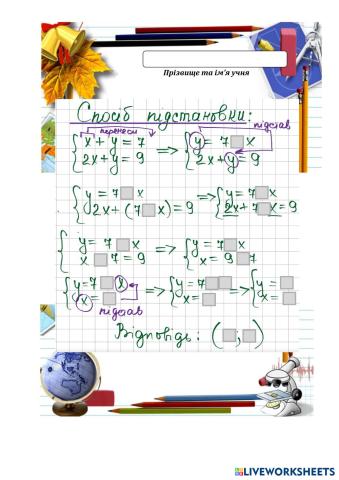 Прізвище та ім'я учня
Спосіб підстановки:
перенеси
підстав
{ x + y = 7 => { y = 7 □ x
2x + y = 9 2x + y = 9
{ y = 7 □ x => { y = 7 □ x
2x + (7 □ x) = 9 2x + 7 □ x = 9
{ y = 7 □ x => { y = 7 □ x
x □ 7 = 9 x = 9 □ 7
{ y = 7 □ x => { y = 7 □ □ => { y = □
x = □ x = □ x = □
підстав
Відповідь: (□; □)
LIVEWORKSHEETS